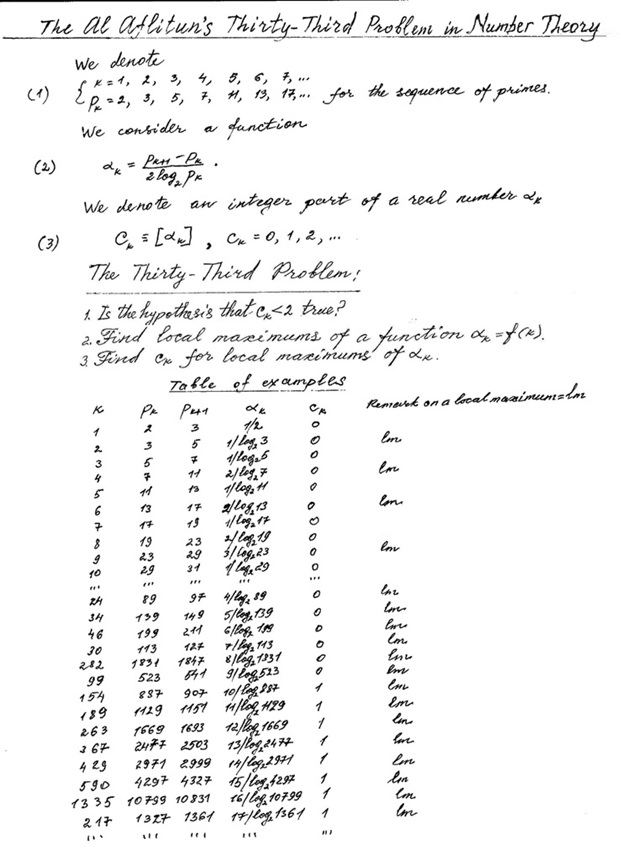 The Al Aflitun's Thirty-Third Problem in Number Theory
We denote
(1) { k = 1, 2, 3, 4, 5, 6, 7, ...
p_k = 2, 3, 5, 7, 11, 13, 17, ... for the sequence of primes.
We consider a function
(2) α_k = (p_{k+1} - p_k) / (2 log_2 p_k).
We denote an integer part of a real number α_k
(3) C_k ≡ [α_k], C_k = 0, 1, 2, ...
The Thirty-Third Problem:
1. Is the hypothesis that C_k < 2 true?
2. Find local maximums of a function α_k = f(k).
3. Find C_k for local maximums of α_k.
Table of examples
k p_k p_{k+1} α_k C_k Remark on a local maximum = lm
1 2 3 1/2 0
2 3 5 1/log_2 3 0 lm
3 5 7 1/log_2 5 0
4 7 11 2/log_2 7 0 lm
5 11 13 1/log_2 11 0
6 13 17 2/log_2 13 0 lm
7 17 19 1/log_2 17 0
8 19 23 2/log_2 19 0
9 23 29 3/log_2 23 0 lm
10 29 31 1/log_2 29 0
... ... ... ... ...
24 89 97 4/log_2 89 0 lm
34 139 149 5/log_2 139 0 lm
46 199 211 6/log_2 199 0 lm
30 113 127 7/log_2 113 0 lm
282 1831 1847 8/log_2 1831 0 lm
99 523 541 9/log_2 523 0 lm
154 887 907 10/log_2 887 1 lm
189 1129 1151 11/log_2 1129 1 lm
263 1669 1693 12/log_2 1669 1 lm
367 2477 2503 13/log_2 2477 1 lm
429 2971 2999 14/log_2 2971 1 lm
590 4297 4327 15/log_2 4297 1 lm
1335 10799 10831 16/log_2 10799 1 lm
217 1327 1361 17/log_2 1361 1 lm
... ... ... ... ...